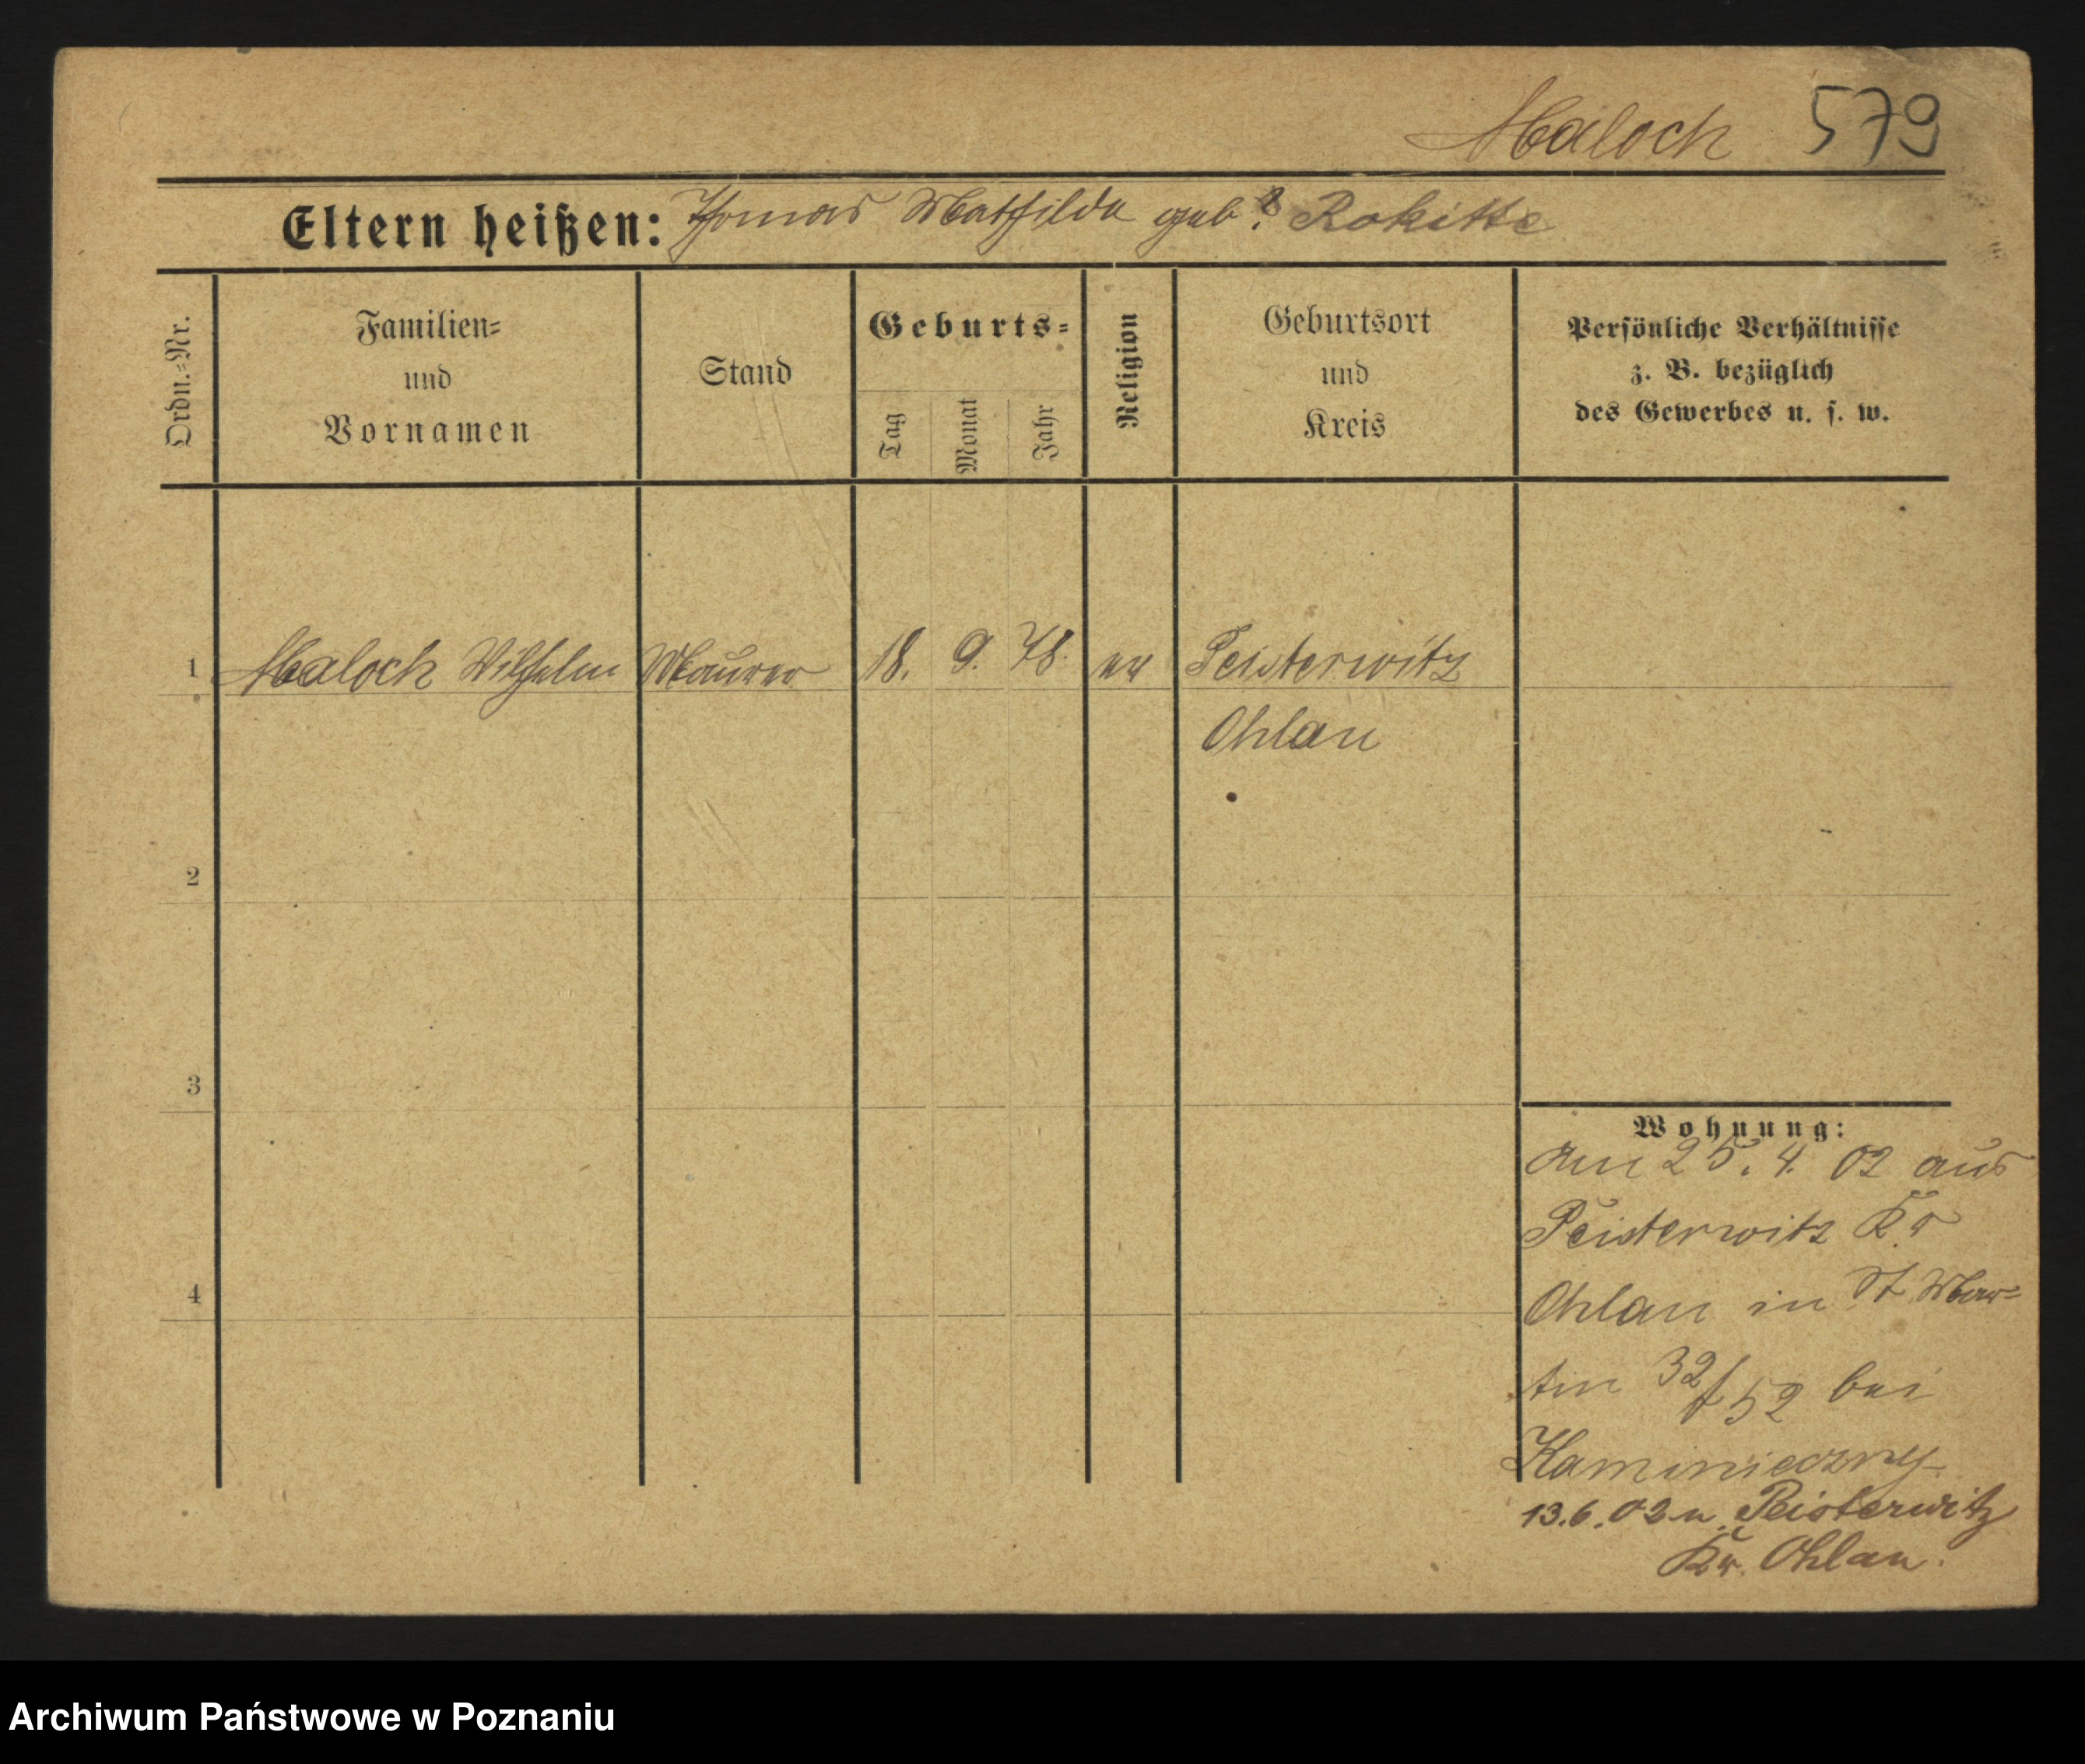 Maloch 579
Eltern heißen: Thomas Mathilda geb. Rokitte
Ordn.=Nr.
Familien=
und
Vornamen
Stand
Geburts=
Tag
Monat
Jahr
Religion
Geburtsort
und
Kreis
Persönliche Verhältnisse
z. B. bezüglich
des Gewerbes u. s. w.
1 Maloch Wilhelm Maurer 18. 9. 78. ev Peisterwitz
Ohlau
2
3
4
Wohnung:
Am 25. 4. 02 aus
Peisterwitz Kr
Ohlau in St Mar=
tin 32/52 bei
Kaminieczny
13.6.02 n. Peisterwitz
Kr. Ohlau.
Archiwum Państwowe w Poznaniu